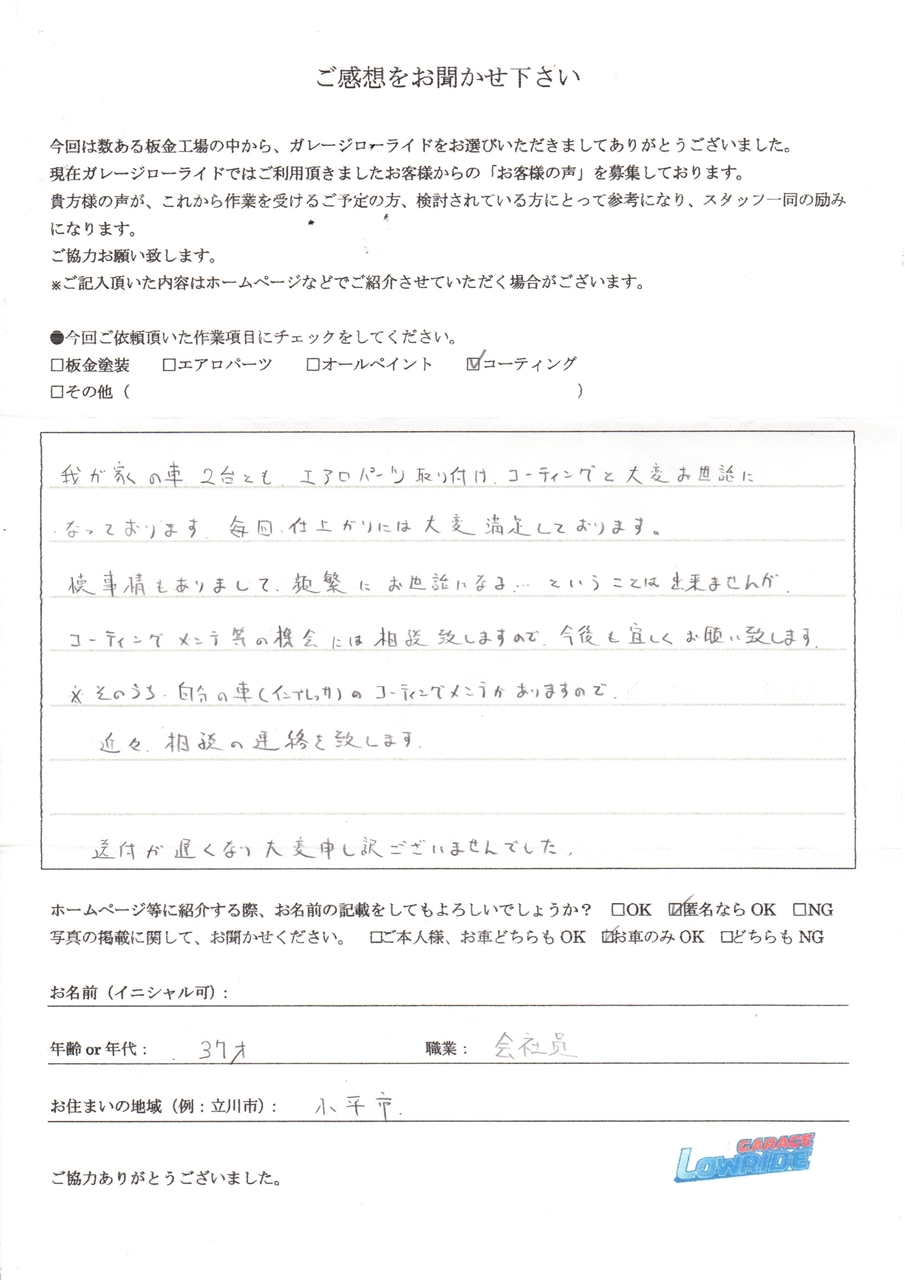 ご感想をお聞かせ下さい
今回は数ある板金工場の中から、ガレージローライドをお選びいただきましてありがとうございました。
現在ガレージローライドではご利用頂きましたお客様からの「お客様の声」を募集しております。
貴方様の声が、これから作業を受けるご予定の方、検討されている方にとって参考になり、スタッフ一同の励み
になります。
ご協力お願い致します。
※ご記入頂いた内容はホームページなどでご紹介させていただく場合がございます。
●今回ご依頼頂いた作業項目にチェックをしてください。
□板金塗装 □エアロパーツ □オールペイント ☑コーティング
□その他（ ）
我が家の車 2台とも、エアロパーツ取り付け、コーティングと大変お世話に
なっております。毎回、仕上がりには大変満足しております。
事情もありまして、頻繁にお世話になる… ということは出来ませんが、
コーティングメンテ等の機会には相談致しますので、今後も宜しくお願い致します。
※そのうち、自分の車(インプレッサ)のコーティングメンテがありますので、
近々、相談の連絡を致します。
送付が遅くなり大変申し訳ございませんでした。
ホームページ等に紹介する際、お名前の記載をしてもよろしいでしょうか？ □OK ☑匿名なら OK □NG
写真の掲載に関して、お聞かせください。 □ご本人様、お車どちらも OK ☑お車のみ OK □どちらも NG
お名前（イニシャル可）：
年齢 or 年代： 37才 職業： 会社員
お住まいの地域（例：立川市）： 小平市
GARAGE
LOWRIDE
ご協力ありがとうございました。